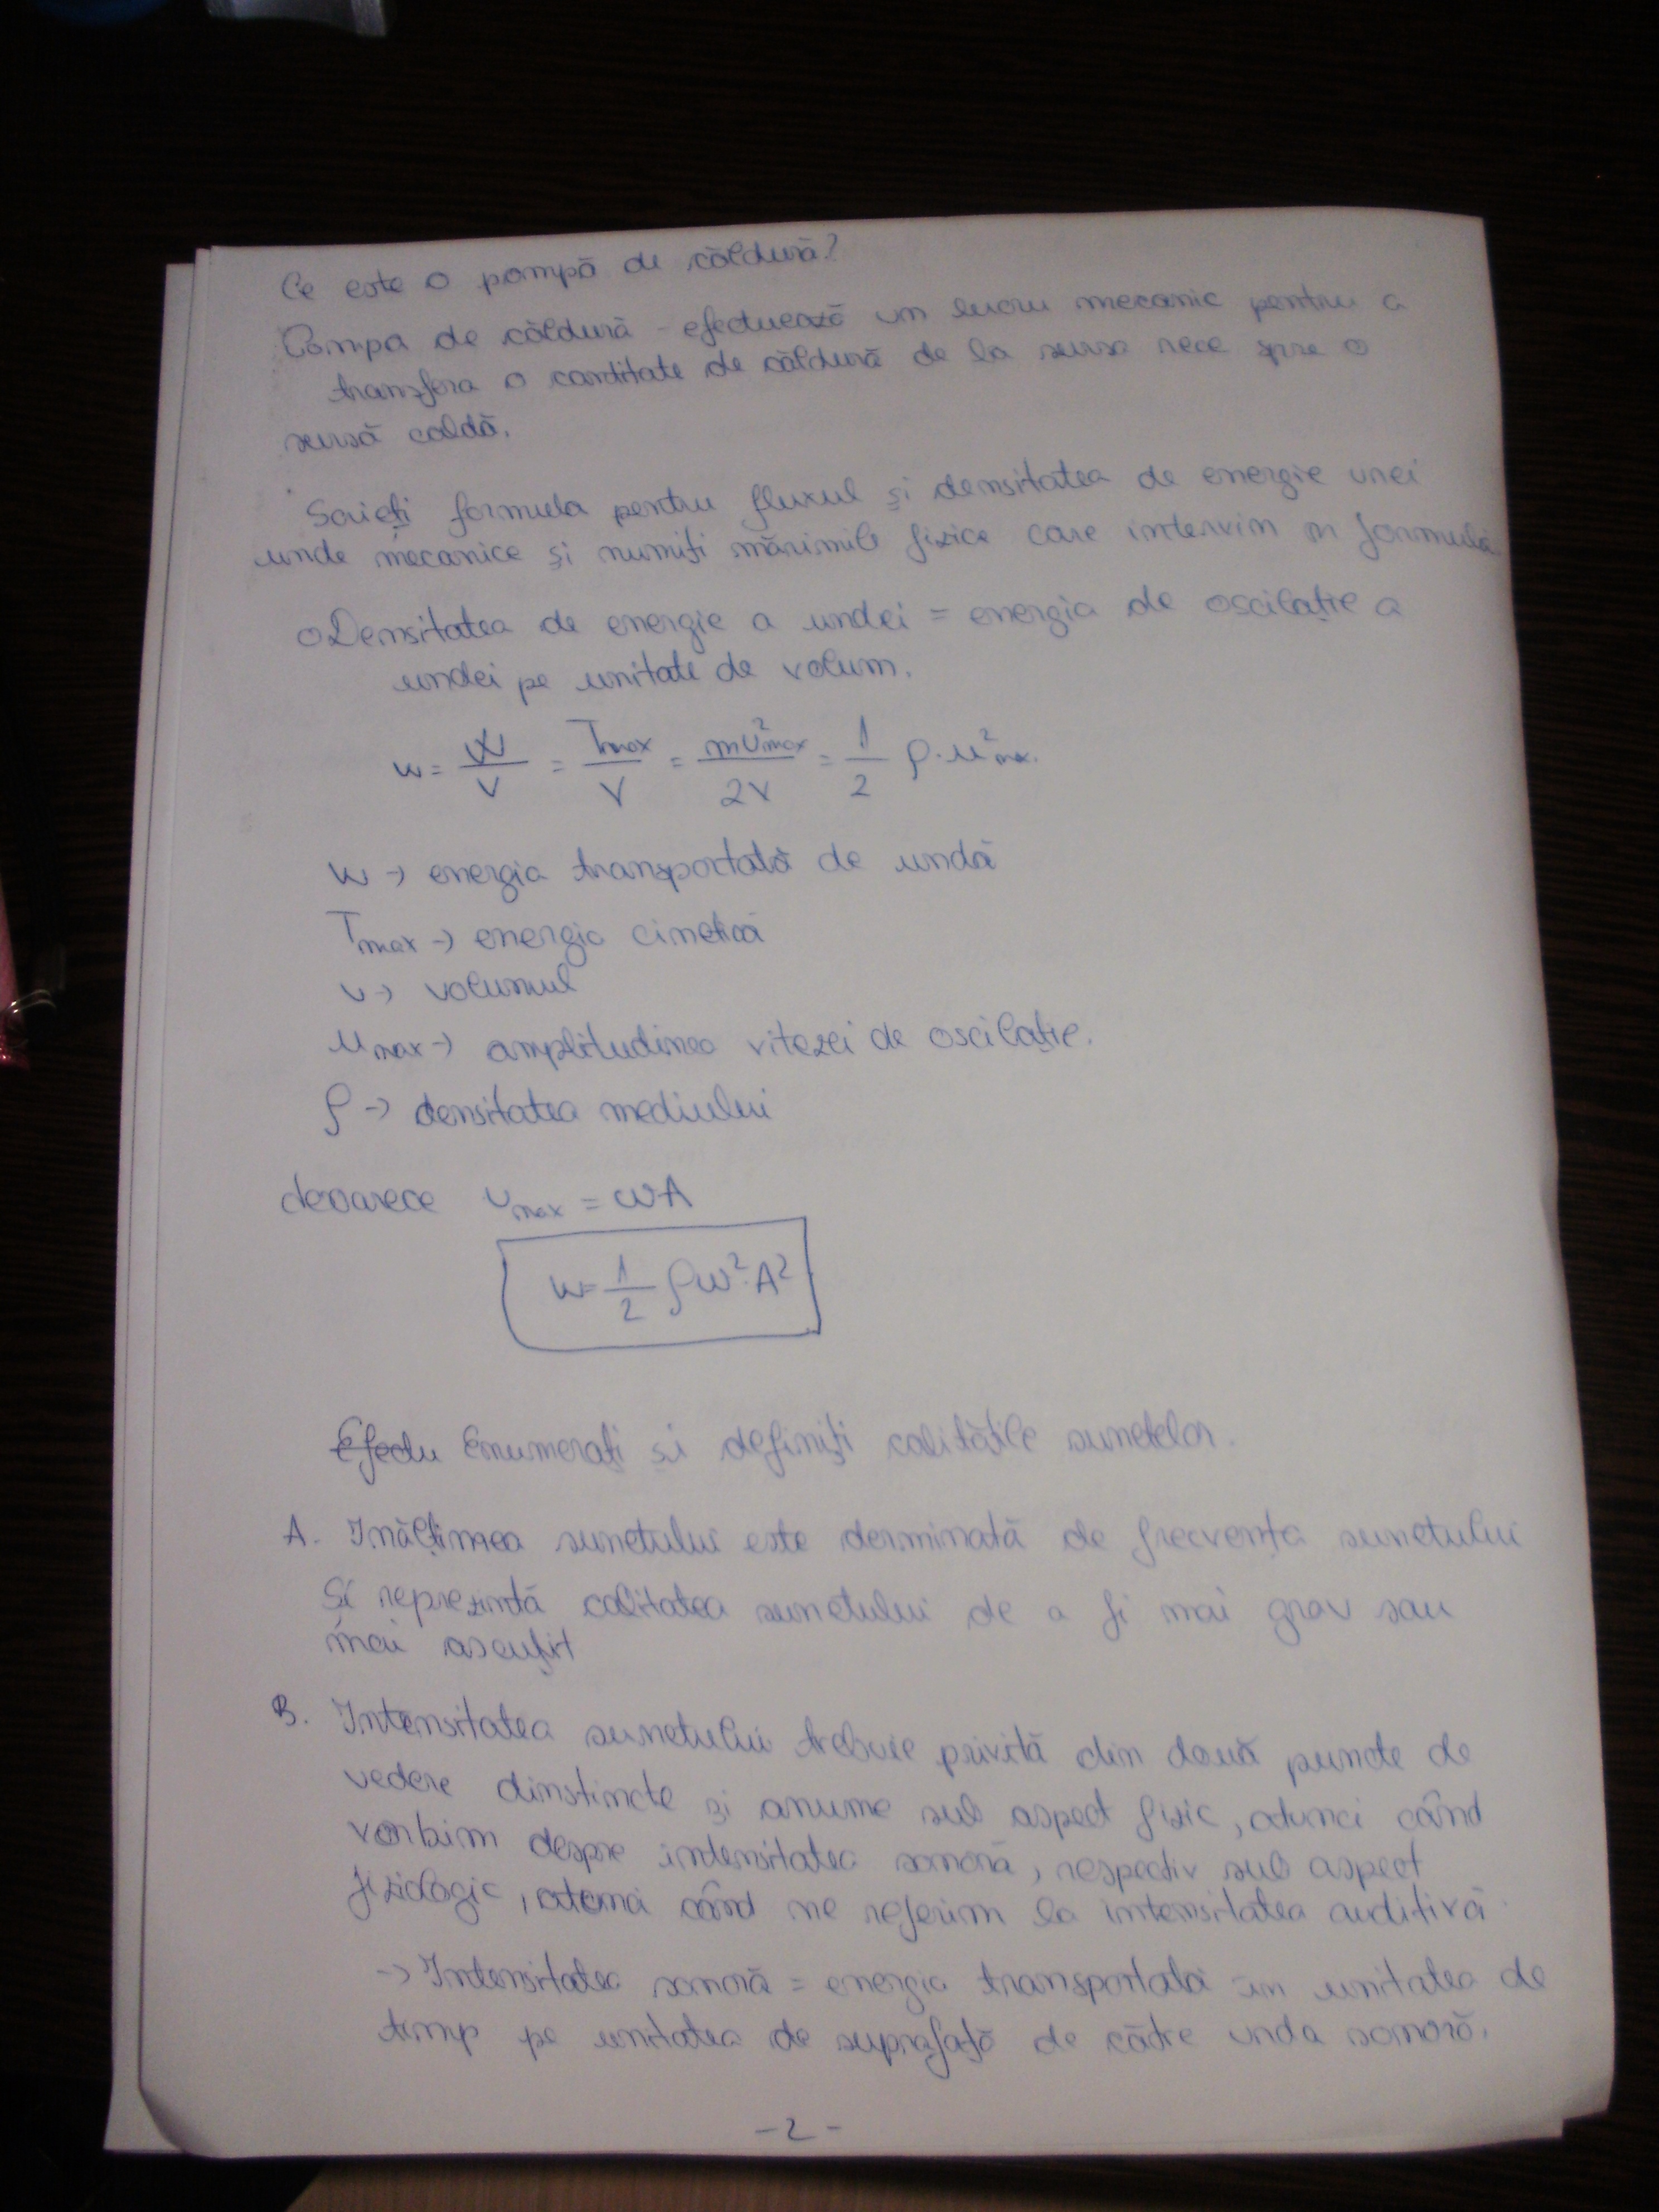 Ce este o pompă de căldură?
Pompa de căldură - efectuează un lucru mecanic pentru a
transfera o cantitate de căldură de la sursa rece spre o
sursă caldă.
Scrieți formula pentru fluxul și densitatea de energie unei
unde mecanice și numiți mărimile fizice care intervin în formulă.
o Densitatea de energie a undei = energia de oscilație a
undei pe unitate de volum.
w = W/V = Tmax/V = mu²max/2V = 1/2 ρ·u²max.
W → energia transportată de undă
Tmax → energia cinetică
V → volumul
umax → amplitudinea vitezei de oscilație.
ρ → densitatea mediului
deoarece umax = ωA
w = 1/2 ρω²·A²
Efectu Enumerați și definiți calitățile sunetelor.
A. Inălțimea sunetului este derminată de frecvența sunetului
Și reprezintă calitatea sunetului de a fi mai grav sau
mai ascuțit
B. Intensitatea sunetului trebuie privită din două puncte de
vedere dinstincte și anume sub aspect fizic, atunci când
vorbim despre intensitatea sonoră, respectiv sub aspect
fiziologic, atunci când ne referim la intensitatea auditivă.
→ Intensitatea sonoră = energia transportată în unitatea de
timp pe unitatea de suprafață de către unda sonoră.
- 2 -